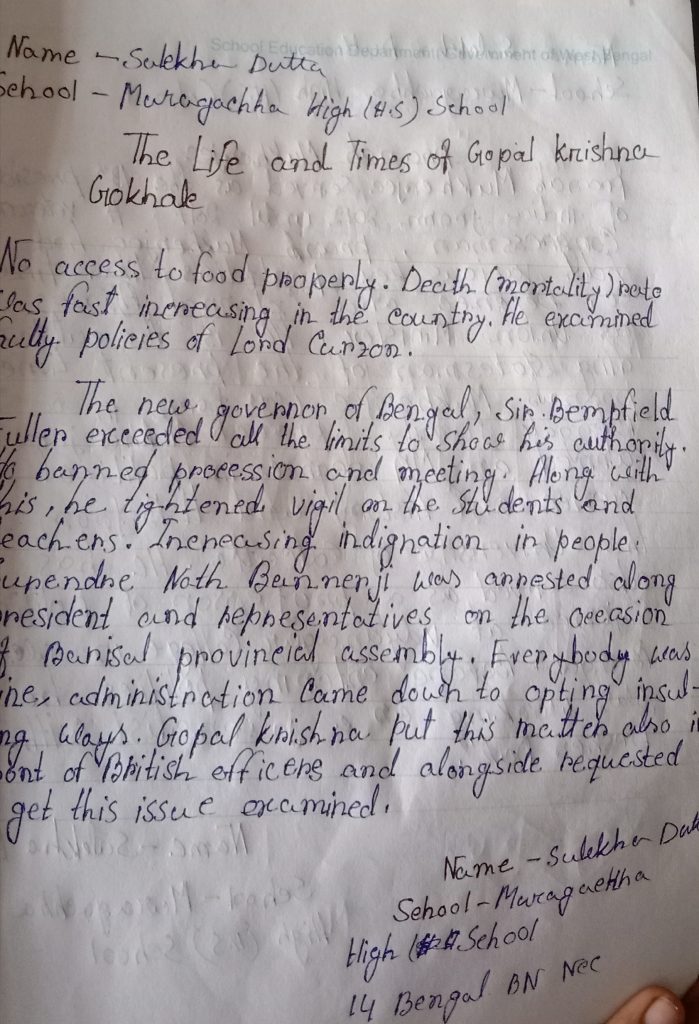 School Education Department, Government of West Bengal
Name - Sulekha Dutta
School - Muragachha High (H.S) School
The Life and Times of Gopal Krishna
Gokhale
No access to food properly. Death (mortality) rate
was fast increasing in the country. He examined
aulty policies of Lord Curzon.
The new governor of Bengal, Sir Bempfield
Fuller exceeded all the limits to show his authority.
banned procession and meeting. Along with
his, he tightened vigil on the students and
eachers. Increasing indignation in people.
urendre Nath Bannerji was arrested along
president and representatives on the occasion
of Barisal provincial assembly. Everybody was
ine, administration came down to opting insul-
ng ways. Gopal krishna put this matter also i
ont of British officers and alongside requested
get this issue examined.
Name - Sulekha Dutt
School - Muragachha
High School
14 Bengal BN Ncc